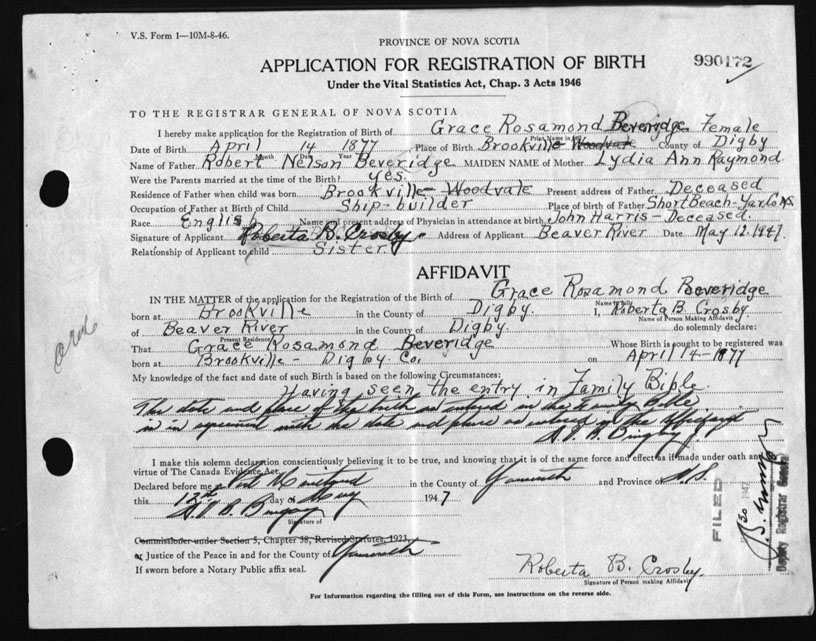 V.S. Form 1—10M-8-46.
PROVINCE OF NOVA SCOTIA
APPLICATION FOR REGISTRATION OF BIRTH
990172
Under the Vital Statistics Act, Chap. 3 Acts 1946
TO THE REGISTRAR GENERAL OF NOVA SCOTIA
I hereby make application for the Registration of Birth of Grace Rosamond Beveridge Female
Print Name in full
Date of Birth April 14 1877 Place of Birth Brookville Woodvale County of Digby
Month Day Year
Name of Father Robert Nelson Beveridge MAIDEN NAME of Mother Lydia Ann Raymond
Were the Parents married at the time of Birth? yes.
Residence of Father when child was born Brookville Woodvale Present address of Father Deceased
Occupation of Father at Birth of Child Ship-builder Place of birth of Father Short Beach-Yar.Co. N.S.
Race English Name and present address of Physician in attendance at birth John Harris - Deceased.
Signature of Applicant Roberta B. Crosby Address of Applicant Beaver River Date May 12. 1947.
Relationship of Applicant to child Sister
AFFIDAVIT
IN THE MATTER of the application for the Registration of the Birth of Grace Rosamond Beveridge
born at Brookville in the County of Digby. I, Roberta B. Crosby
Name of Person Making Affidavit
of Beaver River in the County of Digby. do solemnly declare:
Present Residence
That Grace Rosamond Beveridge Whose Birth is sought to be registered was
born at Brookville - Digby Co. on April 14-1877
My knowledge of the fact and date of such Birth is based on the following Circumstances:
Having seen the entry in Family Bible.
The date and place of the birth as entered in the Family Bible
is in agreement with the date and place as entered on the affidavit
I make this solemn declaration conscientiously believing it to be true, and knowing that it is of the same force and effect as if made under oath and
virtue of The Canada Evidence Act.
Declared before me at Port Maitland in the County of Yarmouth and Province of N.S.
this 12th day of May 1947
Signature of
Commissioner under Section 5, Chapter 38, Revised Statutes, 1923,
or Justice of the Peace in and for the County of Yarmouth
If sworn before a Notary Public affix seal.
Roberta B. Crosby.
Signature of Person making Affidavit
For Information regarding the filling out of this Form, see instructions on the reverse side.
FILED
30 1947
Deputy Registrar General